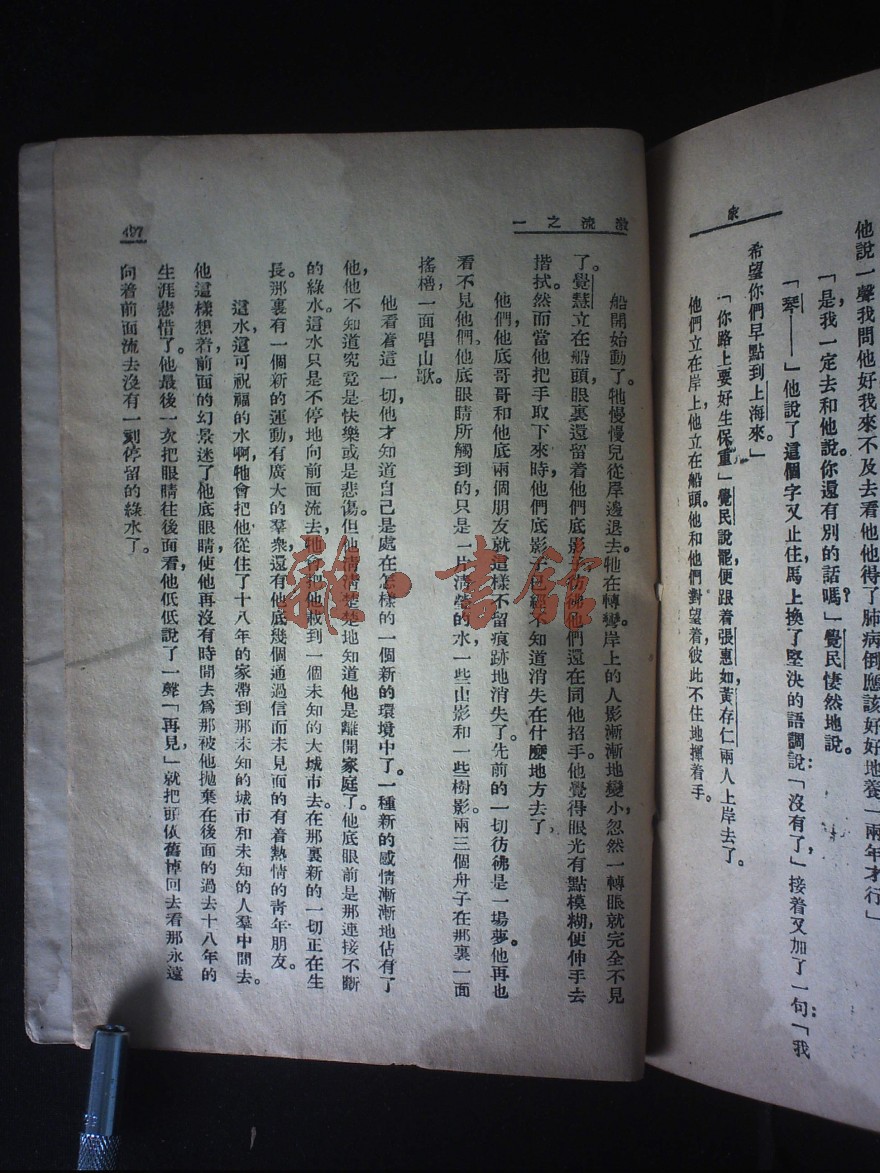 家
他說一聲我問他好我來不及去看他他得了肺病倒應該好好地養一兩年才行」
「是我一定去和他說你還有別的話嗎？」覺民悽然地說。
「琴——」他說了這個字又止住馬上換了堅決的語調說：「沒有了，」接着又加了一句：「我
希望你們早點到上海來。」
「你路上要好生保重」覺民說罷便跟着張惠如，黃存仁兩人上岸去了。
他們立在岸上他立在船頭。他和他們對望着，彼此不住地揮着手。
激流之一
船開始動了。牠慢慢兒從岸邊退去。牠在轉彎。岸上的人影漸漸地變小，忽然一轉眼就完全不見
了。覺慧立在船頭，眼裏還留着他們底影子，彷彿他們還在同他招手。他覺得眼光有點模糊，便伸手去
揩拭。然而當他把手取下來時，他們底影子已經不知道消失在什麼地方去了，
他們，他底哥哥和他底兩個朋友就這樣不留痕跡地消失了。先前的一切彷彿是一場夢。他再也
看不見他們。他底眼睛所觸到的，只是一片清瑩的水，一些山影和一些樹影。兩三個舟子在那裏一面
搖櫓，一面唱山歌。
他看着這一切，他才知道自己是處在怎樣的一個新的環境中了。一種新的感情漸漸地佔有了
他，他不知道究竟是快樂或是悲傷。但他清清楚楚地知道他是離開家庭了。他底眼前是那連接不斷
的綠水。這水只是不停地向前面流去，牠會把他載到一個未知的大城市去。在那裏新的一切正在生
長。那裏有一個新的運動，有廣大的羣衆，還有他底幾個通過信而未見面的有着熱情的青年朋友。
這水，這可祝福的水啊，牠會把他從住了十八年的家帶到那未知的城市和未知的人羣中間去。
他這樣想着，前面的幻景迷了他底眼睛，使他再沒有時間去爲那被他拋棄在後面的過去十八年的
生涯悲惜了。他最後一次把眼睛往後面看，他低低說了一聲「再見，」就把頭依舊掉回去看那永遠
向着前面流去沒有一刻停留的綠水了。
497
雜·書館